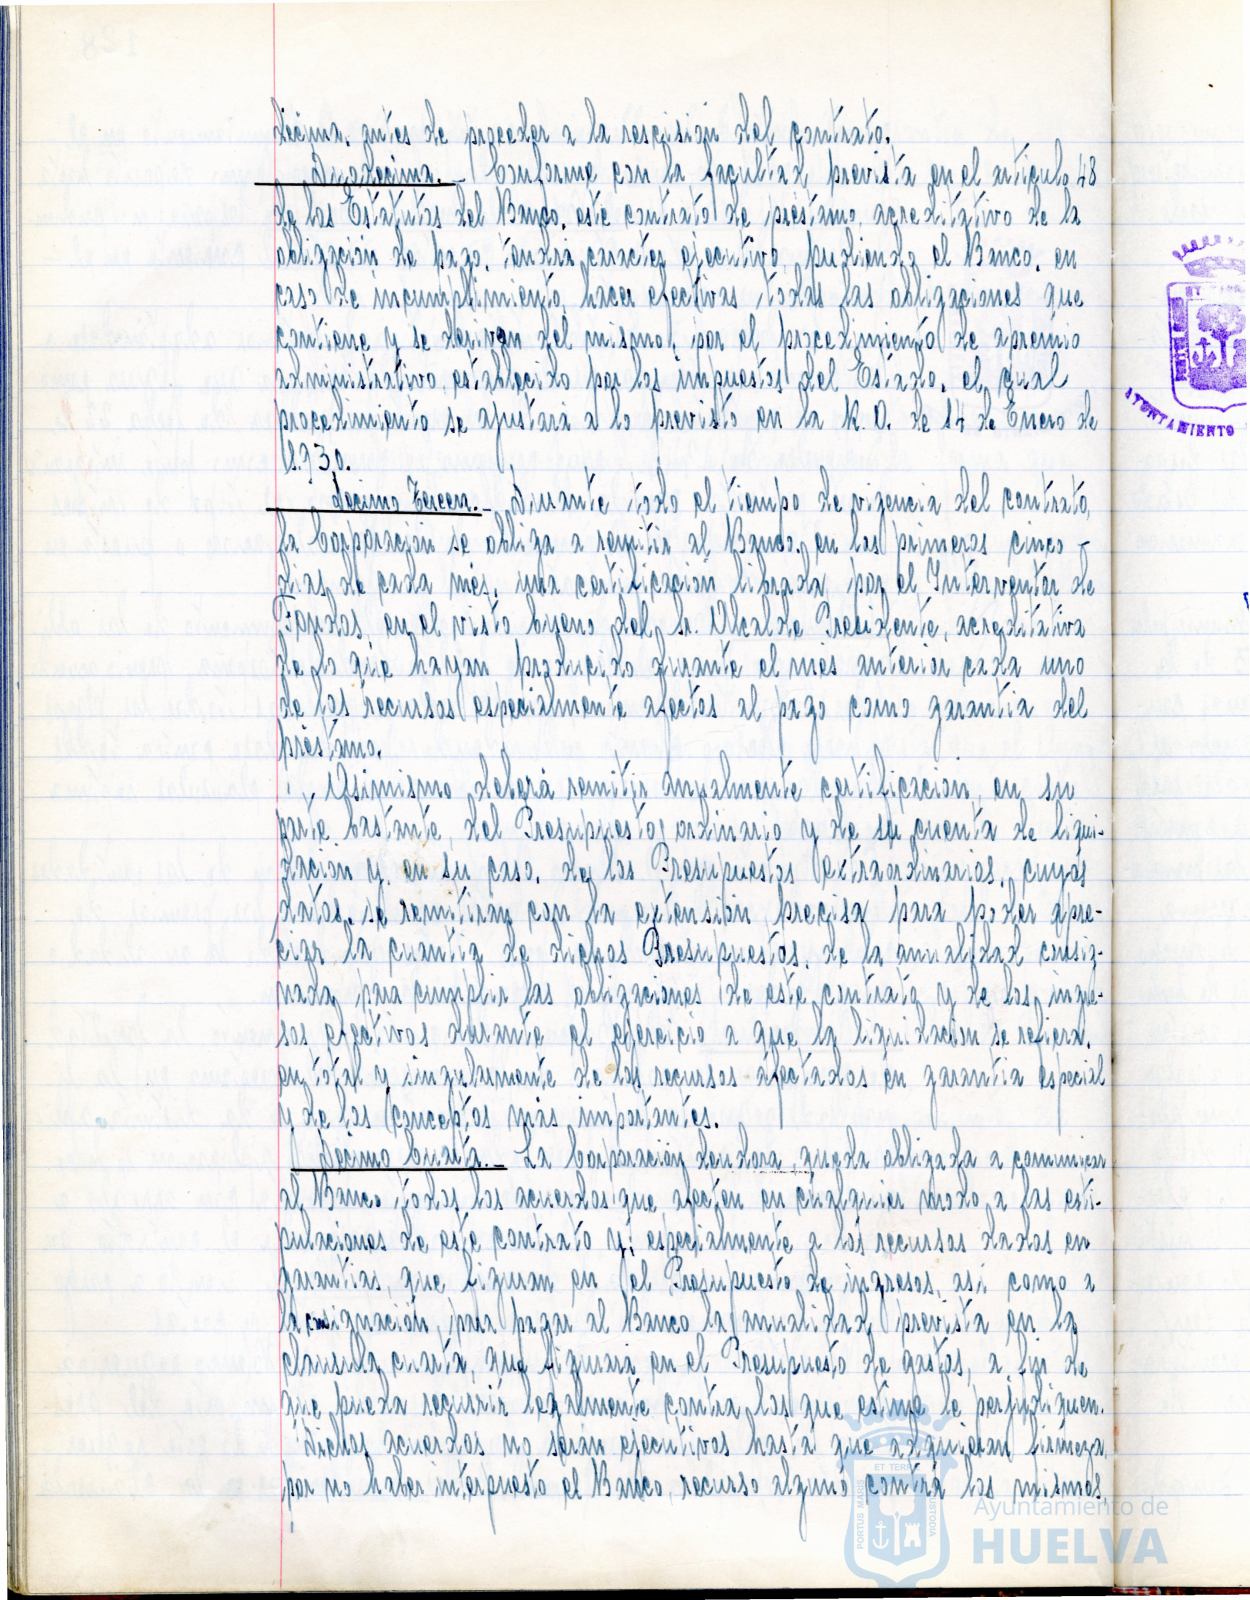 décima, antes de proceder a la rescisión del contrato.
Duodécima.- Conforme con la facultad prevista en el artículo 48
de los Estatutos del Banco, este contrato de préstamo, acreditativo de la
obligación de pago, tendrá caracter ejecutivo, pudiendo el Banco, en
caso de incumplimiento, hacer efectivas todas las obligaciones que
contiene y se derivan del mismo, por el procedimiento de apremio
administrativo, establecido por los impuestos del Estado, el cual
procedimiento se ajustará a lo previsto en la R. O. de 14 de Enero de
1.930.
Décimo Tercera.- Durante todo el tiempo de vigencia del contrato,
la Corporación se obliga a remitir al Banco, en los primeros cinco -
dias de cada més, una certificación librada, por el Interventor de
Fondos, en el visto bueno del Sr. Alcalde Presidente, acreditativa
de lo que hayan producido durante el més anterior cada uno
de los recursos especialmente afectos al pago como garantia del
préstamo.
Asimismo deberá remitir anualmente certificación, en su
parte bastante, del Presupuesto ordinario y de su cuenta de liqui-
dación y, en su caso, de los Presupuestos extraordinarios, cuyos
datos, se remitirán con la extensión precisa para poder apre-
ciar la cuantia de dichos Presupuestos, de la anualidad consig-
nada para cumplir las obligaciones de este contrato y de los ingre-
sos efectivos durante el ejercicio a que la liquidación se refiera,
en total y singularmente de los recursos afectados en garantia especial
y de los conceptos más importantes.
Décimo Cuarta.- La Corporación deudora, queda obligada a comunicar
al Banco todos los acuerdos que afecten en cualquier modo, a las esti-
pulaciones de este contrato y, especialmente a los recursos dados en
garantias, que figuran en el Presupuesto de ingresos, así como a
la consignación, para pagar al Banco la anualidad prevista en la
clausula cuarta, que figurará en el Presupuesto de gastos, a fin de
que pueda recurrir legalmente contra los que estime le perjudiquen.
Dichos acuerdos no serán ejecutivos hasta que adquieran firmeza,
por no haber interpuesto el Banco, recurso alguno contra los mismos,
AYUNTAMIENTO
PORTUS MARIS
ET TERR
CUSTODIA
Ayuntamiento de
HUELVA